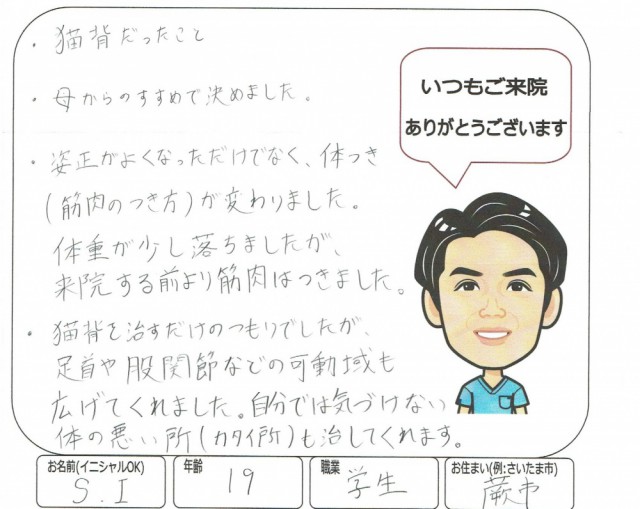 ・猫背だったこと
・母からのすすめで決めました。
・姿正がよくなっただけでなく、体つき
(筋肉のつき方)が変わりました。
体重が少し落ちましたが、
来院する前より筋肉はつきました。
・猫背を治すだけのつもりでしたが、
足首や股関節などの可動域も
広げてくれました。自分では気づけない
体の悪い所(カタイ所)も治してくれます。
いつもご来院
ありがとうございます
お名前(イニシャルOK)
S.I
年齢
19
職業
学生
お住まい(例:さいたま市)
蕨市